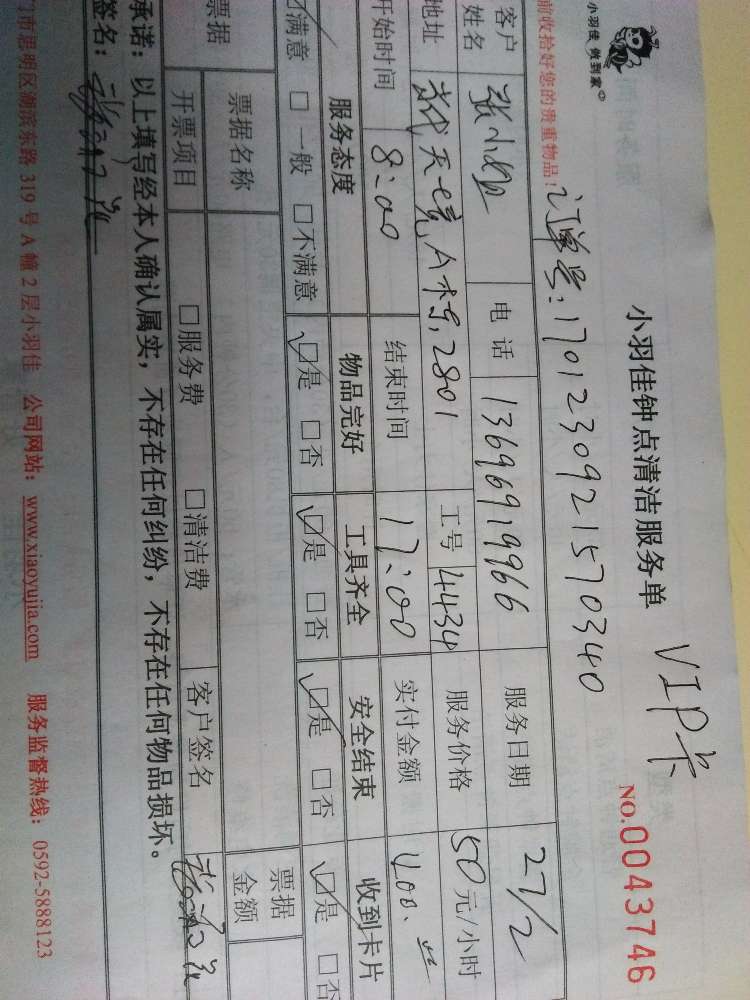 小羽佳 做到家
小羽佳钟点清洁服务单
VIP卡
NO.0043746
前收拾好您的贵重物品!
订单号:170123092157034​0
客户姓名 张小姐 电话 13696919966 服务日期 27/2
地址 天境A栋,2801 工号 4434 服务价格 50元/小时
开始时间 8:00 结束时间 17:00 实付金额 400.
服务态度 物品完好 工具齐全 安全结束 收到卡片
满意 □一般 □不满意 □是 □否 □是 □否 □是 □否 □是 □否
票据 票据名称 票据金额
开票项目 □服务费 □清洁费 客户签名
承诺:以上填写经本人确认属实,不存在任何纠纷,不存在任何物品损坏。
签名:
门市思明区湖滨东路319号A幢2层小羽佳 公司网站:www.xiaoyujia.com 服务监督热线:0592-5888123